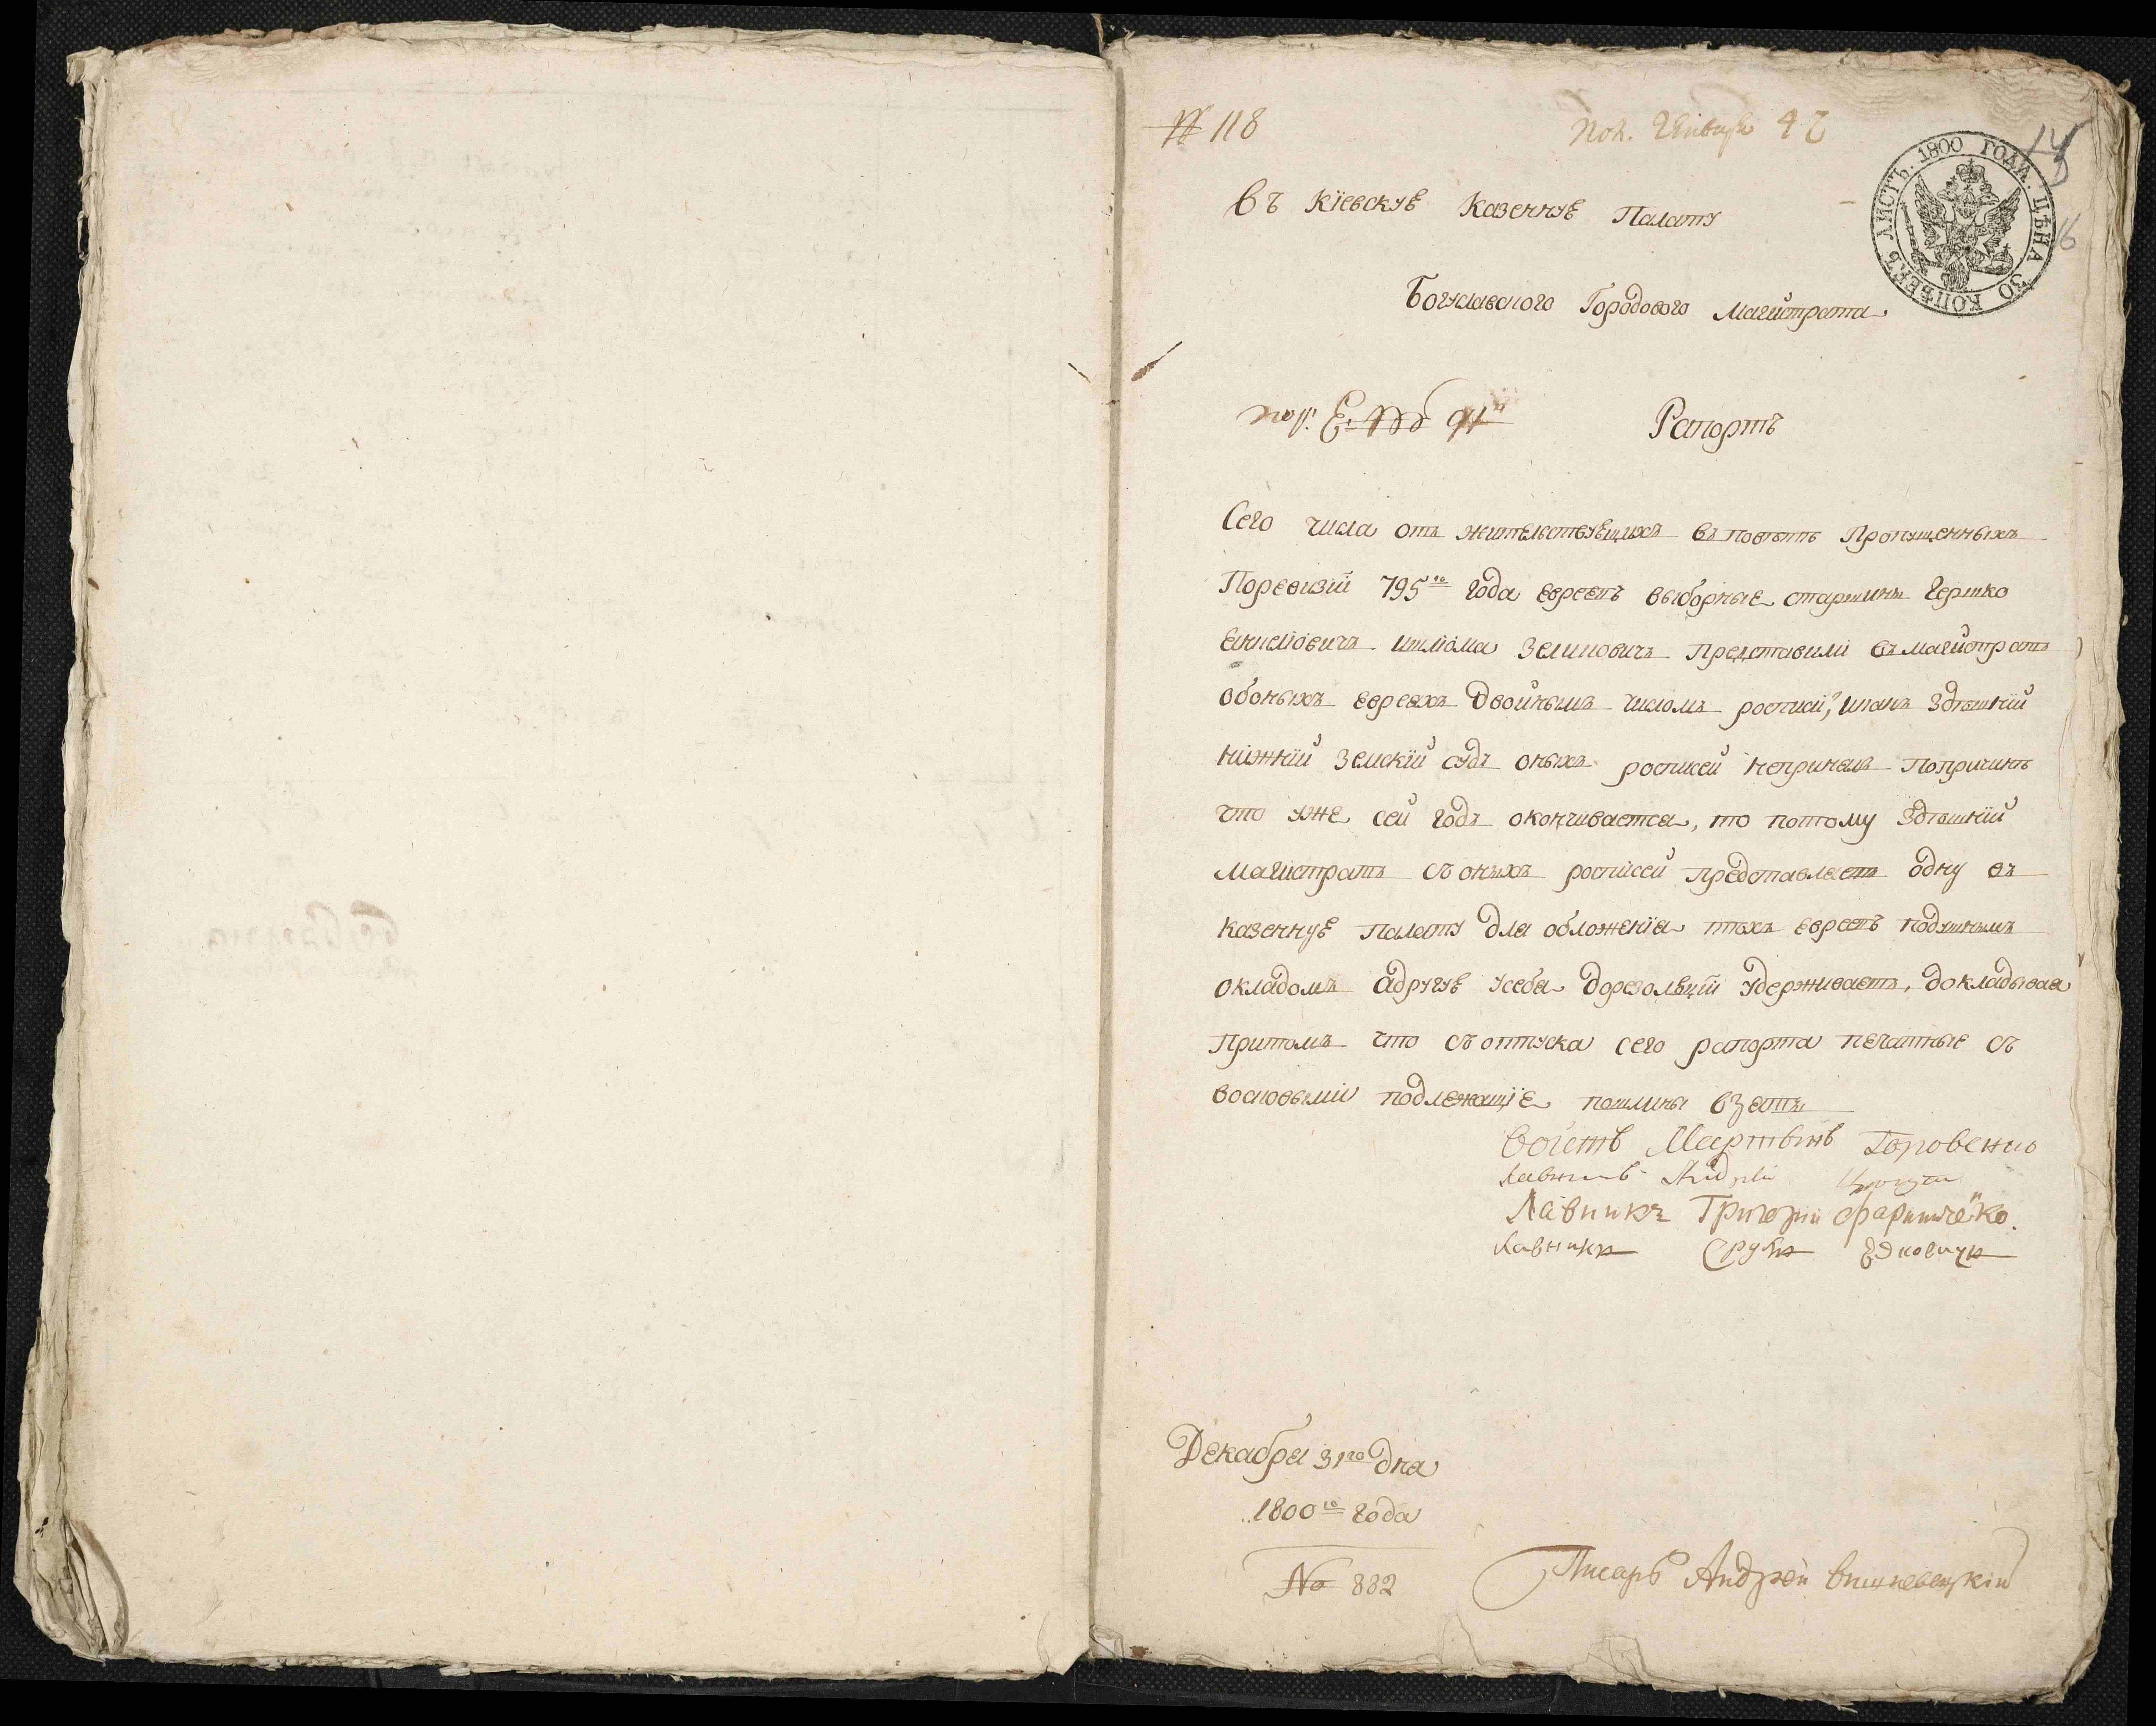 № 118
Пол. Генваря 4
ЛИСТЪ. 1800 ГОДА. ЦѢНА 30 КОПѢЕКЪ
Въ Кїевскую Казенную Палату
Богуславского Городового Магистрата
Рапортъ
Сего числа отъ жительствующихъ въповѣтѣ Пропущенныхъ
Поревизїи 795го года евреевъ выборные старшины Гершко
ицлiома Зелиновичъ представили въмагистратъ
обоныхъ евреяхъ двойнымъ числомъ росписи, икакъ Здѣшнїй
нижнїй Земскїй судъ оныхъ росписей непринялъ Попричинѣ
что уже сей годъ окончивается, то потому Здѣшнїй
магистратъ съ оныхъ росписей представляетъ одну въ
казенную палату для обложенїя тѣхъ евреевъ подушнымъ
окладомъ адругую усебя дорезолюцїи удерживаетъ, докладывая
Притомъ что съ отпуска сего рапорта печатные съ
восковыми подлежащїе пошлины взяты
Войтъ Мартынъ
Лавникъ Андрей
Лавникъ Григорїй
Лавникъ Срулъ
Декабря 31го дня
1800го года
№ 882
Писарь Андрей Вишневецкїй